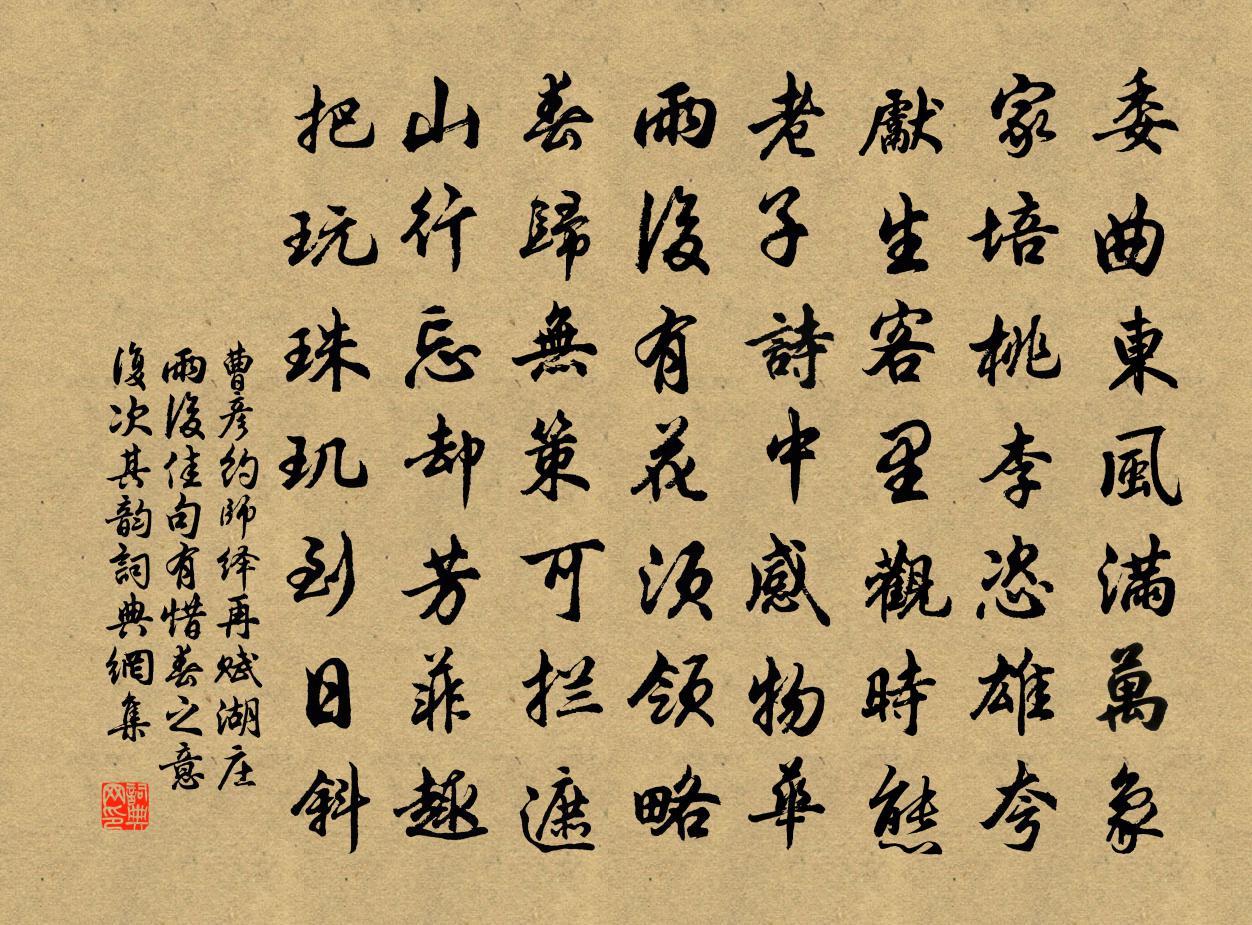 委曲東風滿萬象
家培桃李恣雄夸
獻生客里觀時態
老子詩中感物華
雨後有花須領略
春歸無策可拦遮
山行忘却芳菲趣
把玩珠玑到日斜
曹彦约師绎再赋湖庄
雨後佳句有惜春之意
復次其韵詞典網集
詞典网印